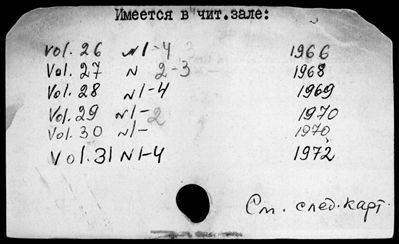 Имеется в чит.зале:
Vol. 26 N1-4 1966
Vol. 27 N 2-3 1968
Vol. 28 N1-4 1969
Vol. 29 N1-2 1970
Vol. 30 N1- 1970
Vol. 31 N1-4 1972
См. след. карт.